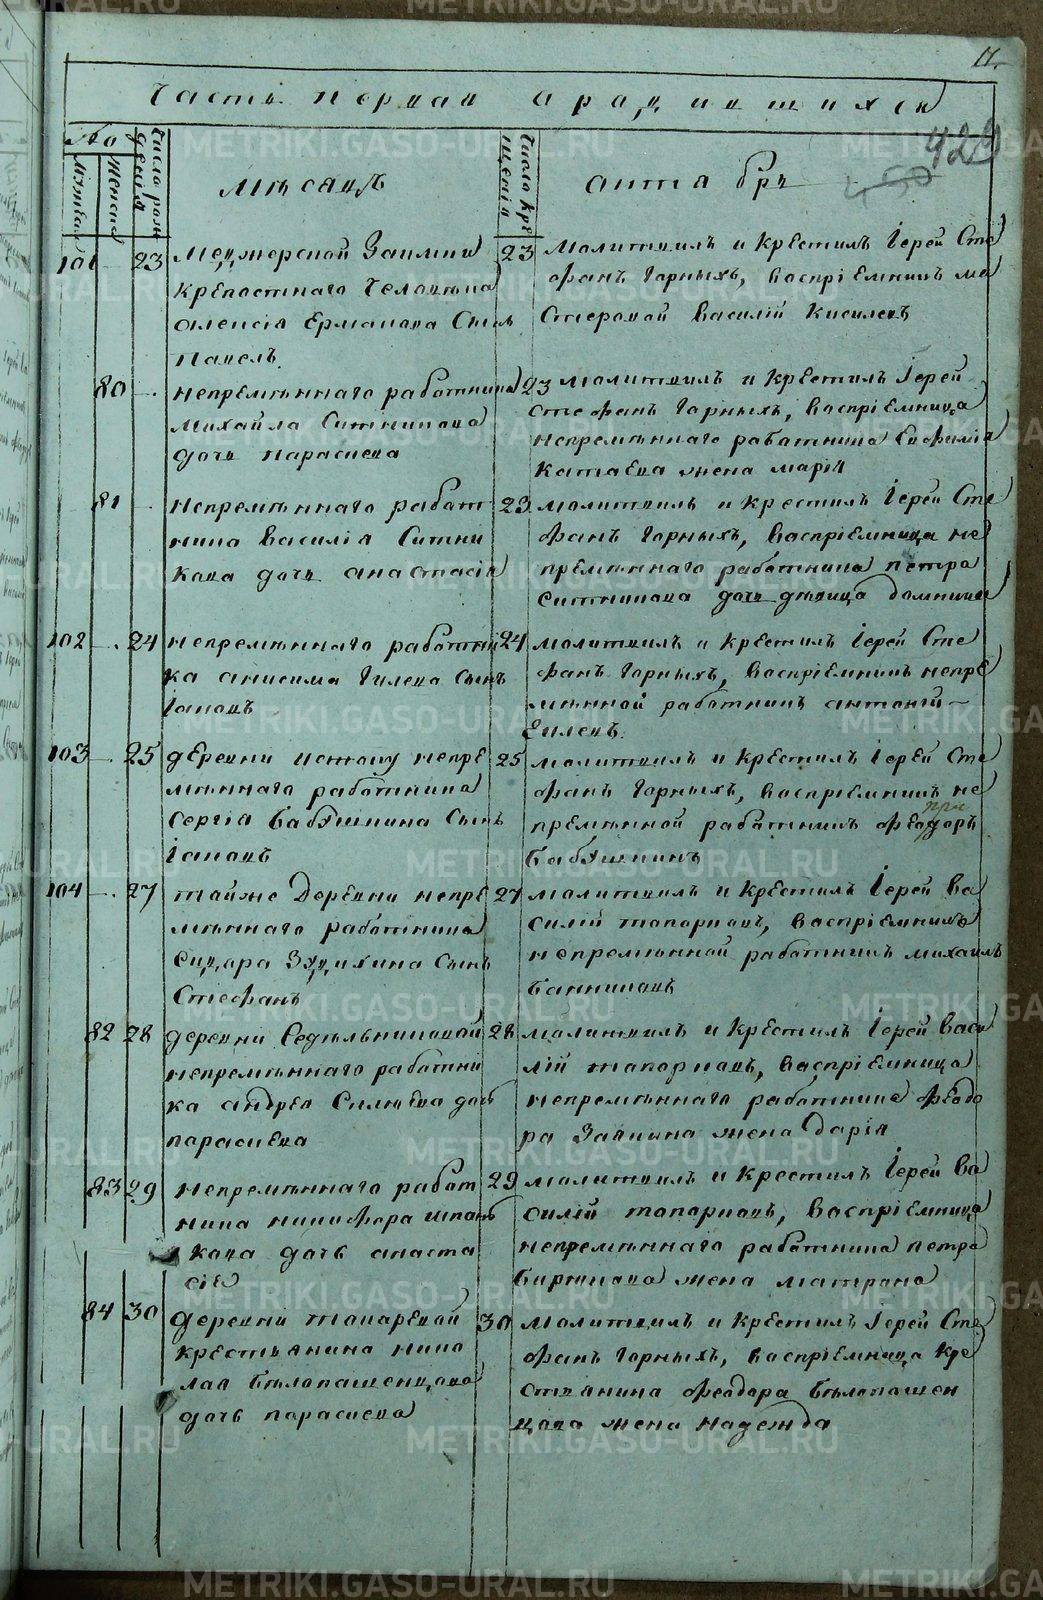 17.
Часть первая о радившихся
429
450
No
мужеска
женска
Число рож
денiя
мѣсяцъ
Числа кре
щенiя
октября брь
101
23
Межверской Заимки
крепостнаго Человѣка
алексiя Ермакова Сынъ
Павелъ.
23
молитвилъ и крѣстилъ Iерей Сте
фанъ Горныхъ, васпрiемникъ ма
стеровой Василiй Киселевъ
80
непремѣннаго работника
Михайла Ситникова
дочь параскева
23
молитвилъ и крѣстилъ Iерей
стефанъ Горныхъ, васпрiемница
непремѣннаго работника Евфимiя
Катаева жена марiя
81
непремѣннаго работ
ника Василiя Ситни
кова дочь анастасiя
23
молитвилъ и крестилъ Iерей Сте
фанъ Горныхъ, васпрiемница не
премѣннаго работника петра
ситникова дочь дѣвица домника
102
24
непремѣннаго работни
ка анисима Гилева Сынъ
Iаковъ
24
молитвилъ и крѣстилъ Iерей Сте
фанъ Горныхъ, васпрiемникъ непре
мѣнной работникъ антонiй
Гилевъ.
103
25
деревни истоку непре
мѣннаго работника
Сергiя Бабушкина Сынъ
Iаковъ
25
молитвилъ и крѣстилъ Iерей Сте
фанъ Горныхъ, васпрiемникъ не
премѣнной работникъ феодоръ
Бабушкинъ
104
27
тайже Деревни непре
мѣннаго работника
Сидара Зудихина Сынъ
Стефанъ
27
молитвилъ и крѣстилъ Iерей Ва
силiй тапорковъ, васпрiемникъ
непремѣнной работникъ михаилъ
банниковъ
82
28
деревни Седѣльниковой
непремѣннаго работни
ка андрея Силюева дочь
параскева
28
молитвилъ и крѣстилъ Iерей Васи
лiй тапорковъ, васпрiемница
непремѣннаго работника Феодо
ра Заякина жена Дарiя
83
29
непремѣннаго работ
ника никифора шпань
кова дочь анаста
сiя
29
молитвилъ и крестилъ Iерей Ва
силiй тапорковъ, васпрiемница
непремѣннаго работника петра
Бирюкова жена матрона
84
30
деревни токаревой
крестьянина нико
лая бѣлопашенцова
дочь параскева
30
молитвилъ и крѣстилъ Iерей Сте
фанъ Горныхъ, васпрiемница кре
стьянина феодора бѣлопашен
цова жена надежда
METRIKI.GASO-URAL.RU